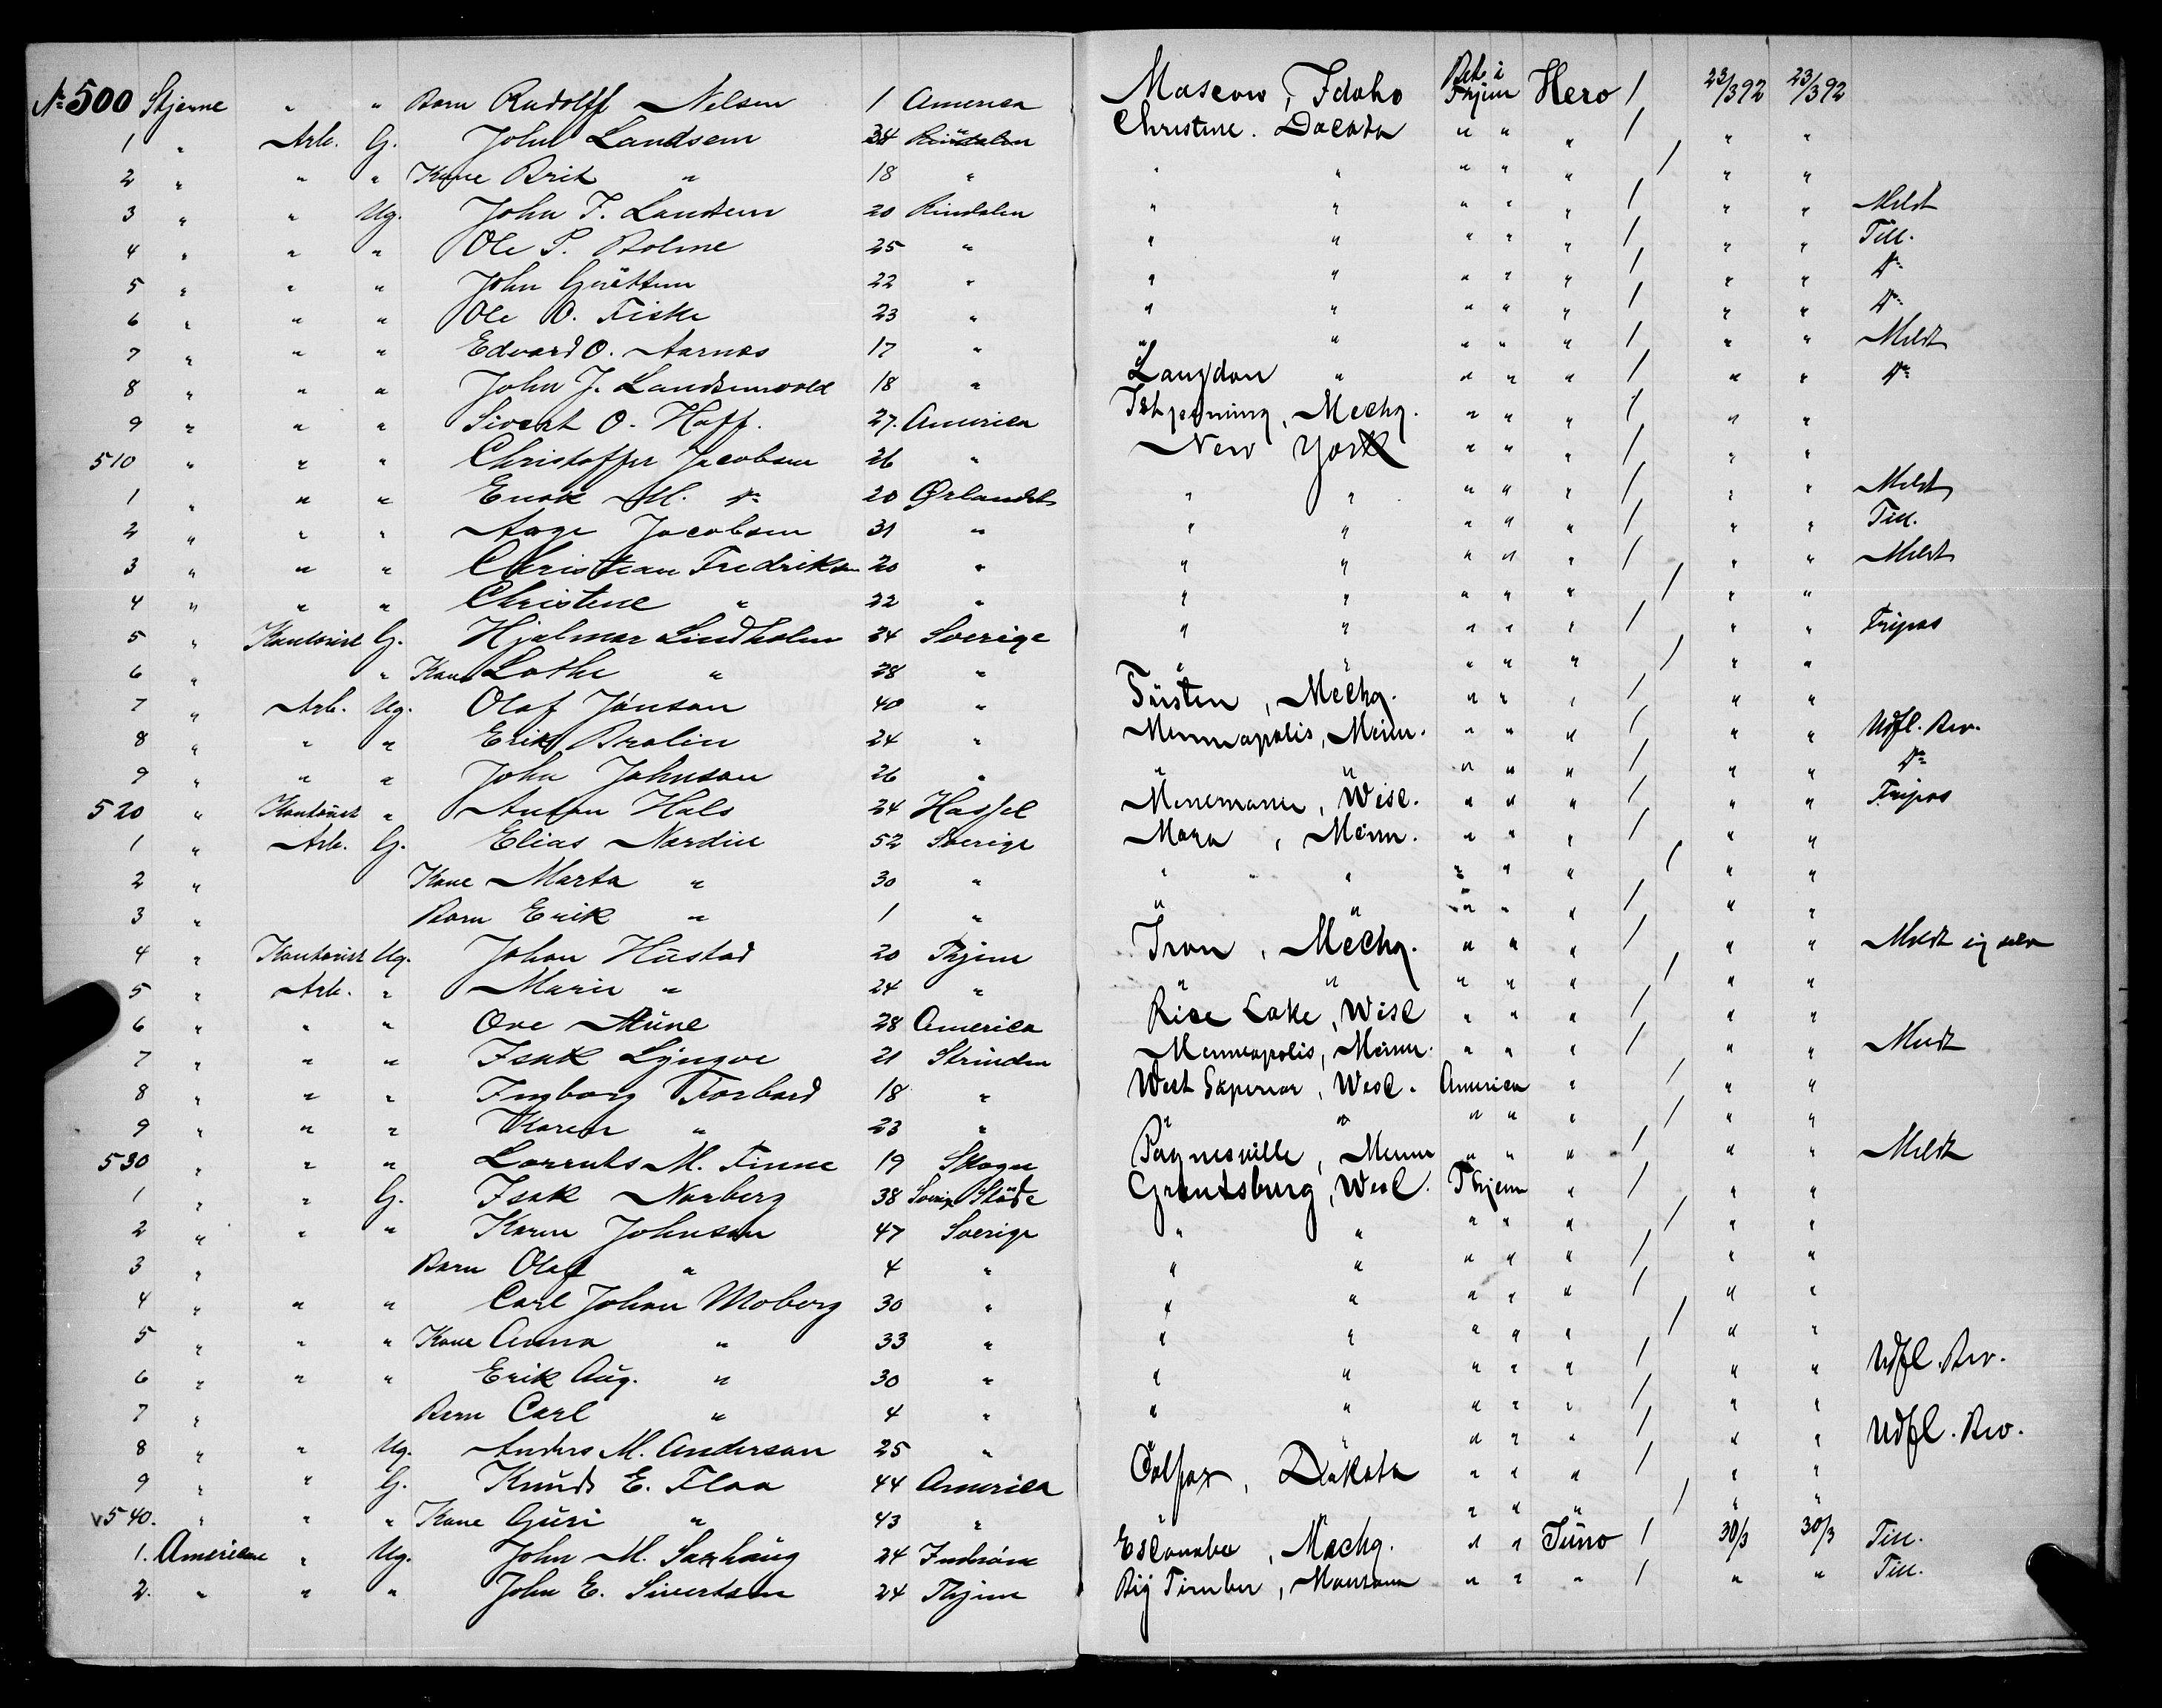 № 500 Stjerne " " Barn Rudolff Nelsen 1 America Moscow, Idaho Bet. i Thjem Hero / 23/3 92 23/3 92
1 " Arb. G. John Landsem 34 Rindalen Christine. Dacota " " " / " "
2 " " " Kone Brit " 18 " " " " " " / " "
3 " " Ug. John F. Landsem 20 Rindalen " " " " " / " " Meldt
4 " " " Ole P. Bolme 25 " " " " " " / " " Till.
5 " " " John Grøttum 22 " " " " " " / " " do
6 " " " Ole O. Fiske 23 " " " " " " / " " do
7 " " " Edvard O. Aarnæs 17 " " " " " " / " " Meldt
8 " " " John J. Landsemvold 18 " Langdon " " " " / " " do
9 " " " Sivert O. Hoff. 27. America Ishpeming, Mechg. " " " / " "
510 " " " Christoffer Jacobsen 26 " New York " " " / " "
1 " " " Enok M. do 20 Ørlandet " " " " " / " " Meldt
2 " " " Aage Jacobsen 31 " " " " " " / " " Till.
3 " " " Christian Fredriksen 20 " " " " " " / " " Meldt
4 " " " Christene " 22 " " " " " " / " "
5 " Kontorist G. Hjalmar Lindholm 24 Sverige " " " " " / " " Fripas
6 " " Kone Lothe " 28 " " " " " " / " "
7 " Arb. Ug. Olof Jonson 40 " Tüsten, Mechg. " " " / " "
8 " " " Erik Brolin 24 " Minneapolis, Minn. " " " / " " Udfl. Bev.
9 " " " John Johnson 26 " " " " " " / " " do
520 " Kontorist " Anton Hals 24 Hassel Menomonee, Wisc. " " " / " " Fripas
1 " Arb. G. Elias Nordin 52 Sverige Mora, Minn. " " " / " "
2 " Kone Marta " 30 " " " " " " / " "
3 " Barn Erik " 1 " " " " " " / " "
4 " Kontorist Ug. Johan Hustad 20 Thjem Iron, Mechg. " " " / " " Meldt sig selv
5 " Arb. " Marie " 24 " " " " " " / " "
6 " " " Ove Mune 28 America Rice Lake, Wisc " " " / " "
7 " " " Isak Lyngve 21 Strinden Minneapolis, Minn. " " " / " " Meldt
8 " " " Ingborg Forbord 18 " West Superior, Wesc. America " / " "
9 " " " Karen " 23 " " " " " " / " "
530 " " " Lorents M. Finne 19 Skogn Paynesville, Minn " " " / " " Meldt
1 " " G. Isak Norberg 38 Sverig Stöde Grantsburg, Wesc. Thjem " / " "
2 " " " Karen Johnson 47 Sverige " " " " " / " "
3 " Barn Olof " 4 " " " " " " / " "
4 " " " Carl Johan Moberg 30 " " " " " " / " "
5 " " " Kone Anna " 33 " " " " " " / " "
6 " " " Erik Aug. " 30 " " " " " " / " " Udfl. Bev.
7 " Barn Carl " 4 " " " " " " / " "
8 " " Ug. Anders M. Anderson 25 " " " " " " / " " Udfl. Bev.
9 " " G. Knud E. Flaa 44 America Colfax, Dakota " " " / " "
v 540. " " " Kone Guri " 43 " " " " " " / " "
1. Americane " Ug. John M. Saxhaug 24 Inderøen Escanaba, Mechg. " " Juno / 30/3 30/3 Till.
2. " " " John E. Sivertsen 24 Thjem Big Timber, Montana " " " / " " Till.